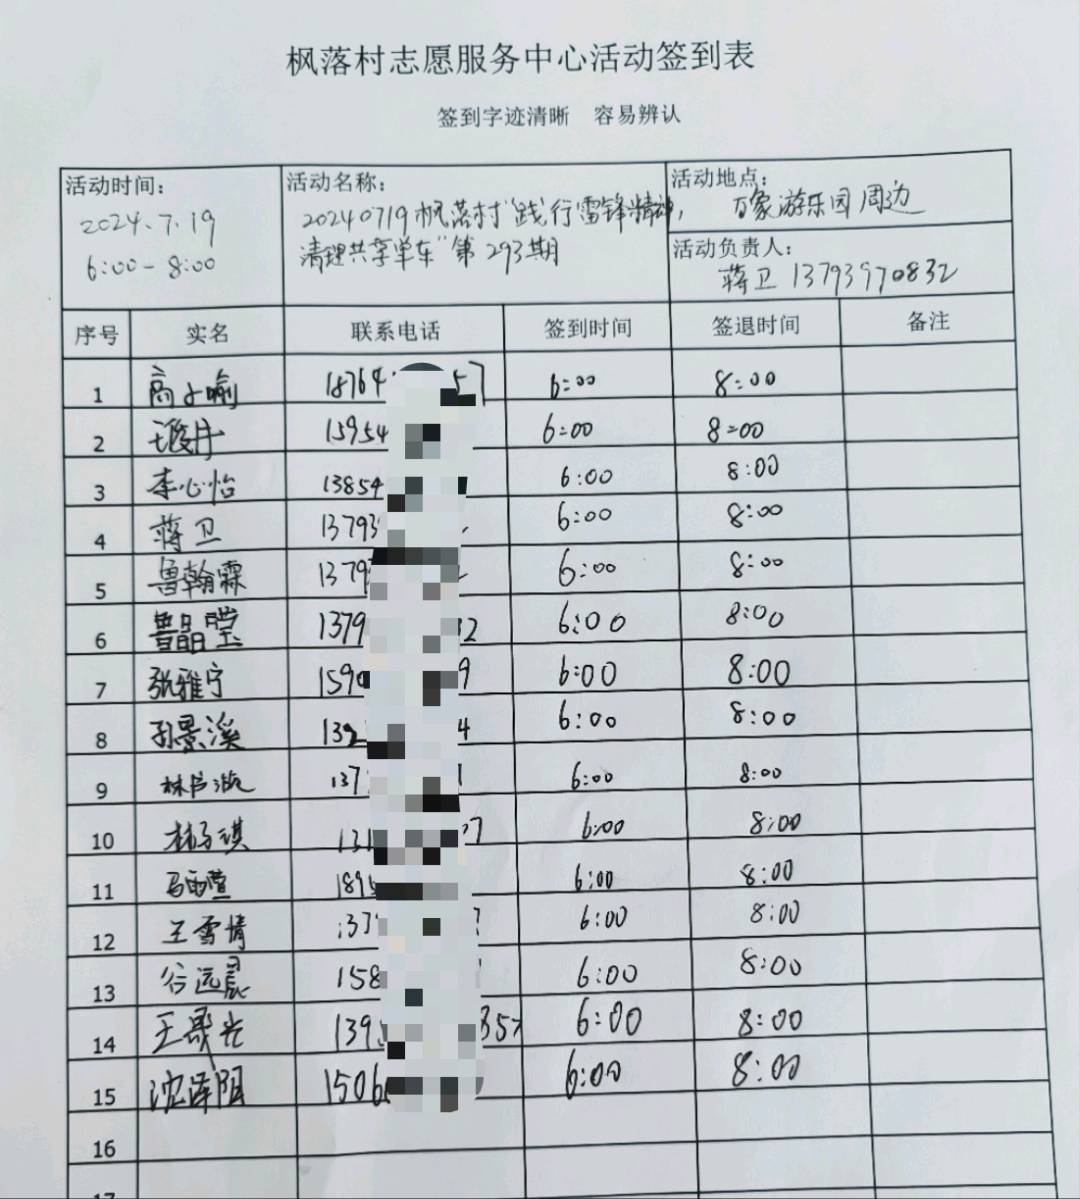 枫落村志愿服务中心活动签到表
签到字迹清晰 容易辨认
活动时间： 活动名称： 活动地点：
2024.7.19 20240719枫落村“践行雷锋精神， 万象游乐园周边
6:00-8:00 清理共享单车”第293期 活动负责人：
蒋卫 13793970832
序号 实名 联系电话 签到时间 签退时间 备注
1 高子喻 18764 57 6:00 8:00
2 15954 6:00 8=00
3 李心怡 13854 6:00 8:00
4 蒋卫 13793 6:00 8:00
5 鲁翰霖 1379 6:00 8:00
6 鲁晶莹 1379 32 6:00 8:00
7 张雅宁 1590 9 6:00 8:00
8 孙景溪 132 4 6:00 8:00
9 137 6:00 8:00
10 林子琪 131 07 6:00 8:00
11 马雨萱 189 6:00 8:00
12 王雪情 137 6:00 8:00
13 谷远晨 158 6:00 8:00
14 王晟光 139 357 6:00 8:00
15 沈泽阳 1506 6:00 8:00
16
17